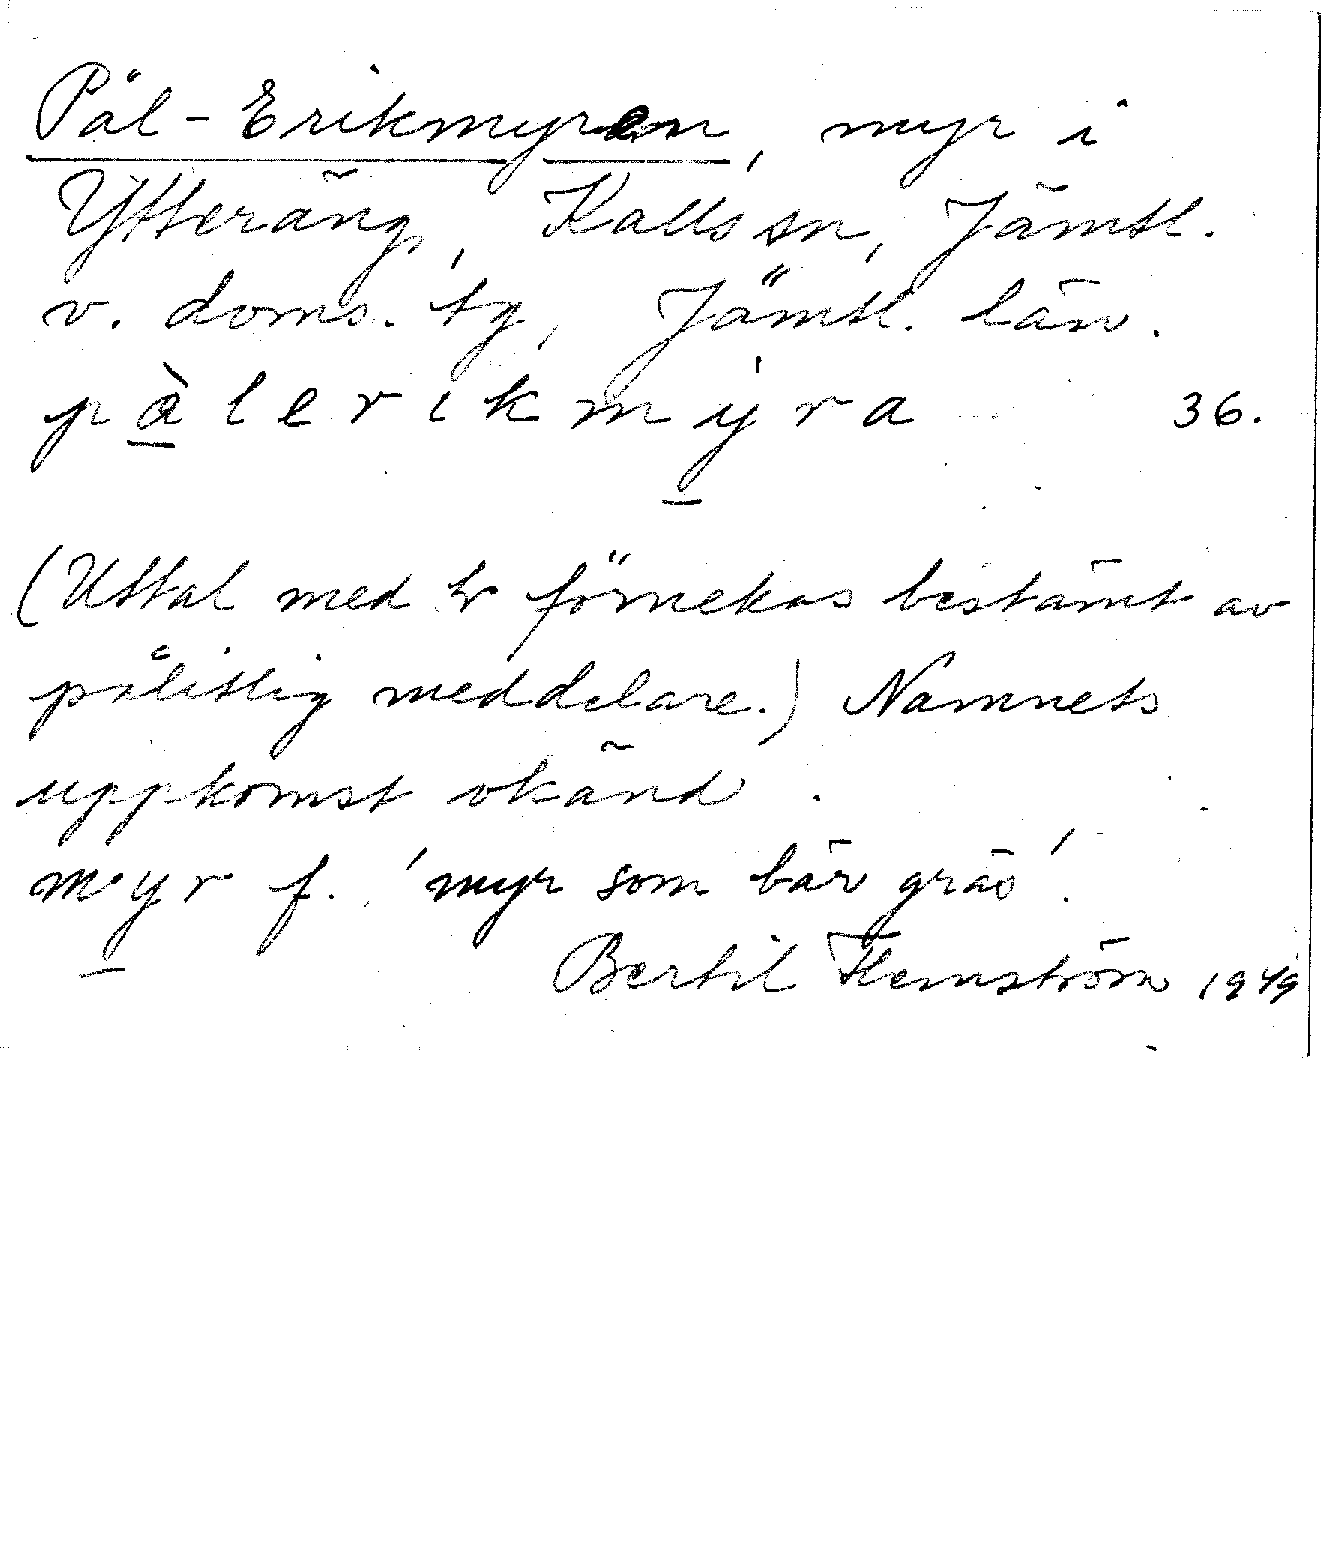 Pål-Erikmyren, myr i
Ytteräng, Kalls sn, Jämtl.
v. doms. tg, Jämtl. län.
pàlerikmýra 36.
(Uttal med förnekas bestämt av
pålitlig meddelare.) Namnets
uppkomst okänd.
myr f. 'myr som bär gräs'.
Bertil Flemström 1949